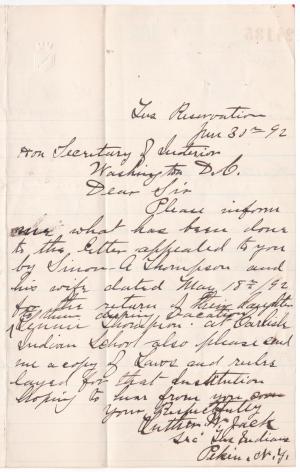 Tus Reservation
Jun 30th 92
Hon Secretary of Interior
Washington D.C.
Dear Sir
Please inform
me what has been done
to the letter appealed to you
by Simon A Thompson and
his wife dated May 18th/92
for the return of their daughter
during vacation
Thompson. at Carlisle
Indian School also please send
me a copy of Laws and rules
layed for that institution
Hoping to hear from you soon
Your Respectfully
Luther W. Jack
Sec Tus Indians
Pekin, N.Y.